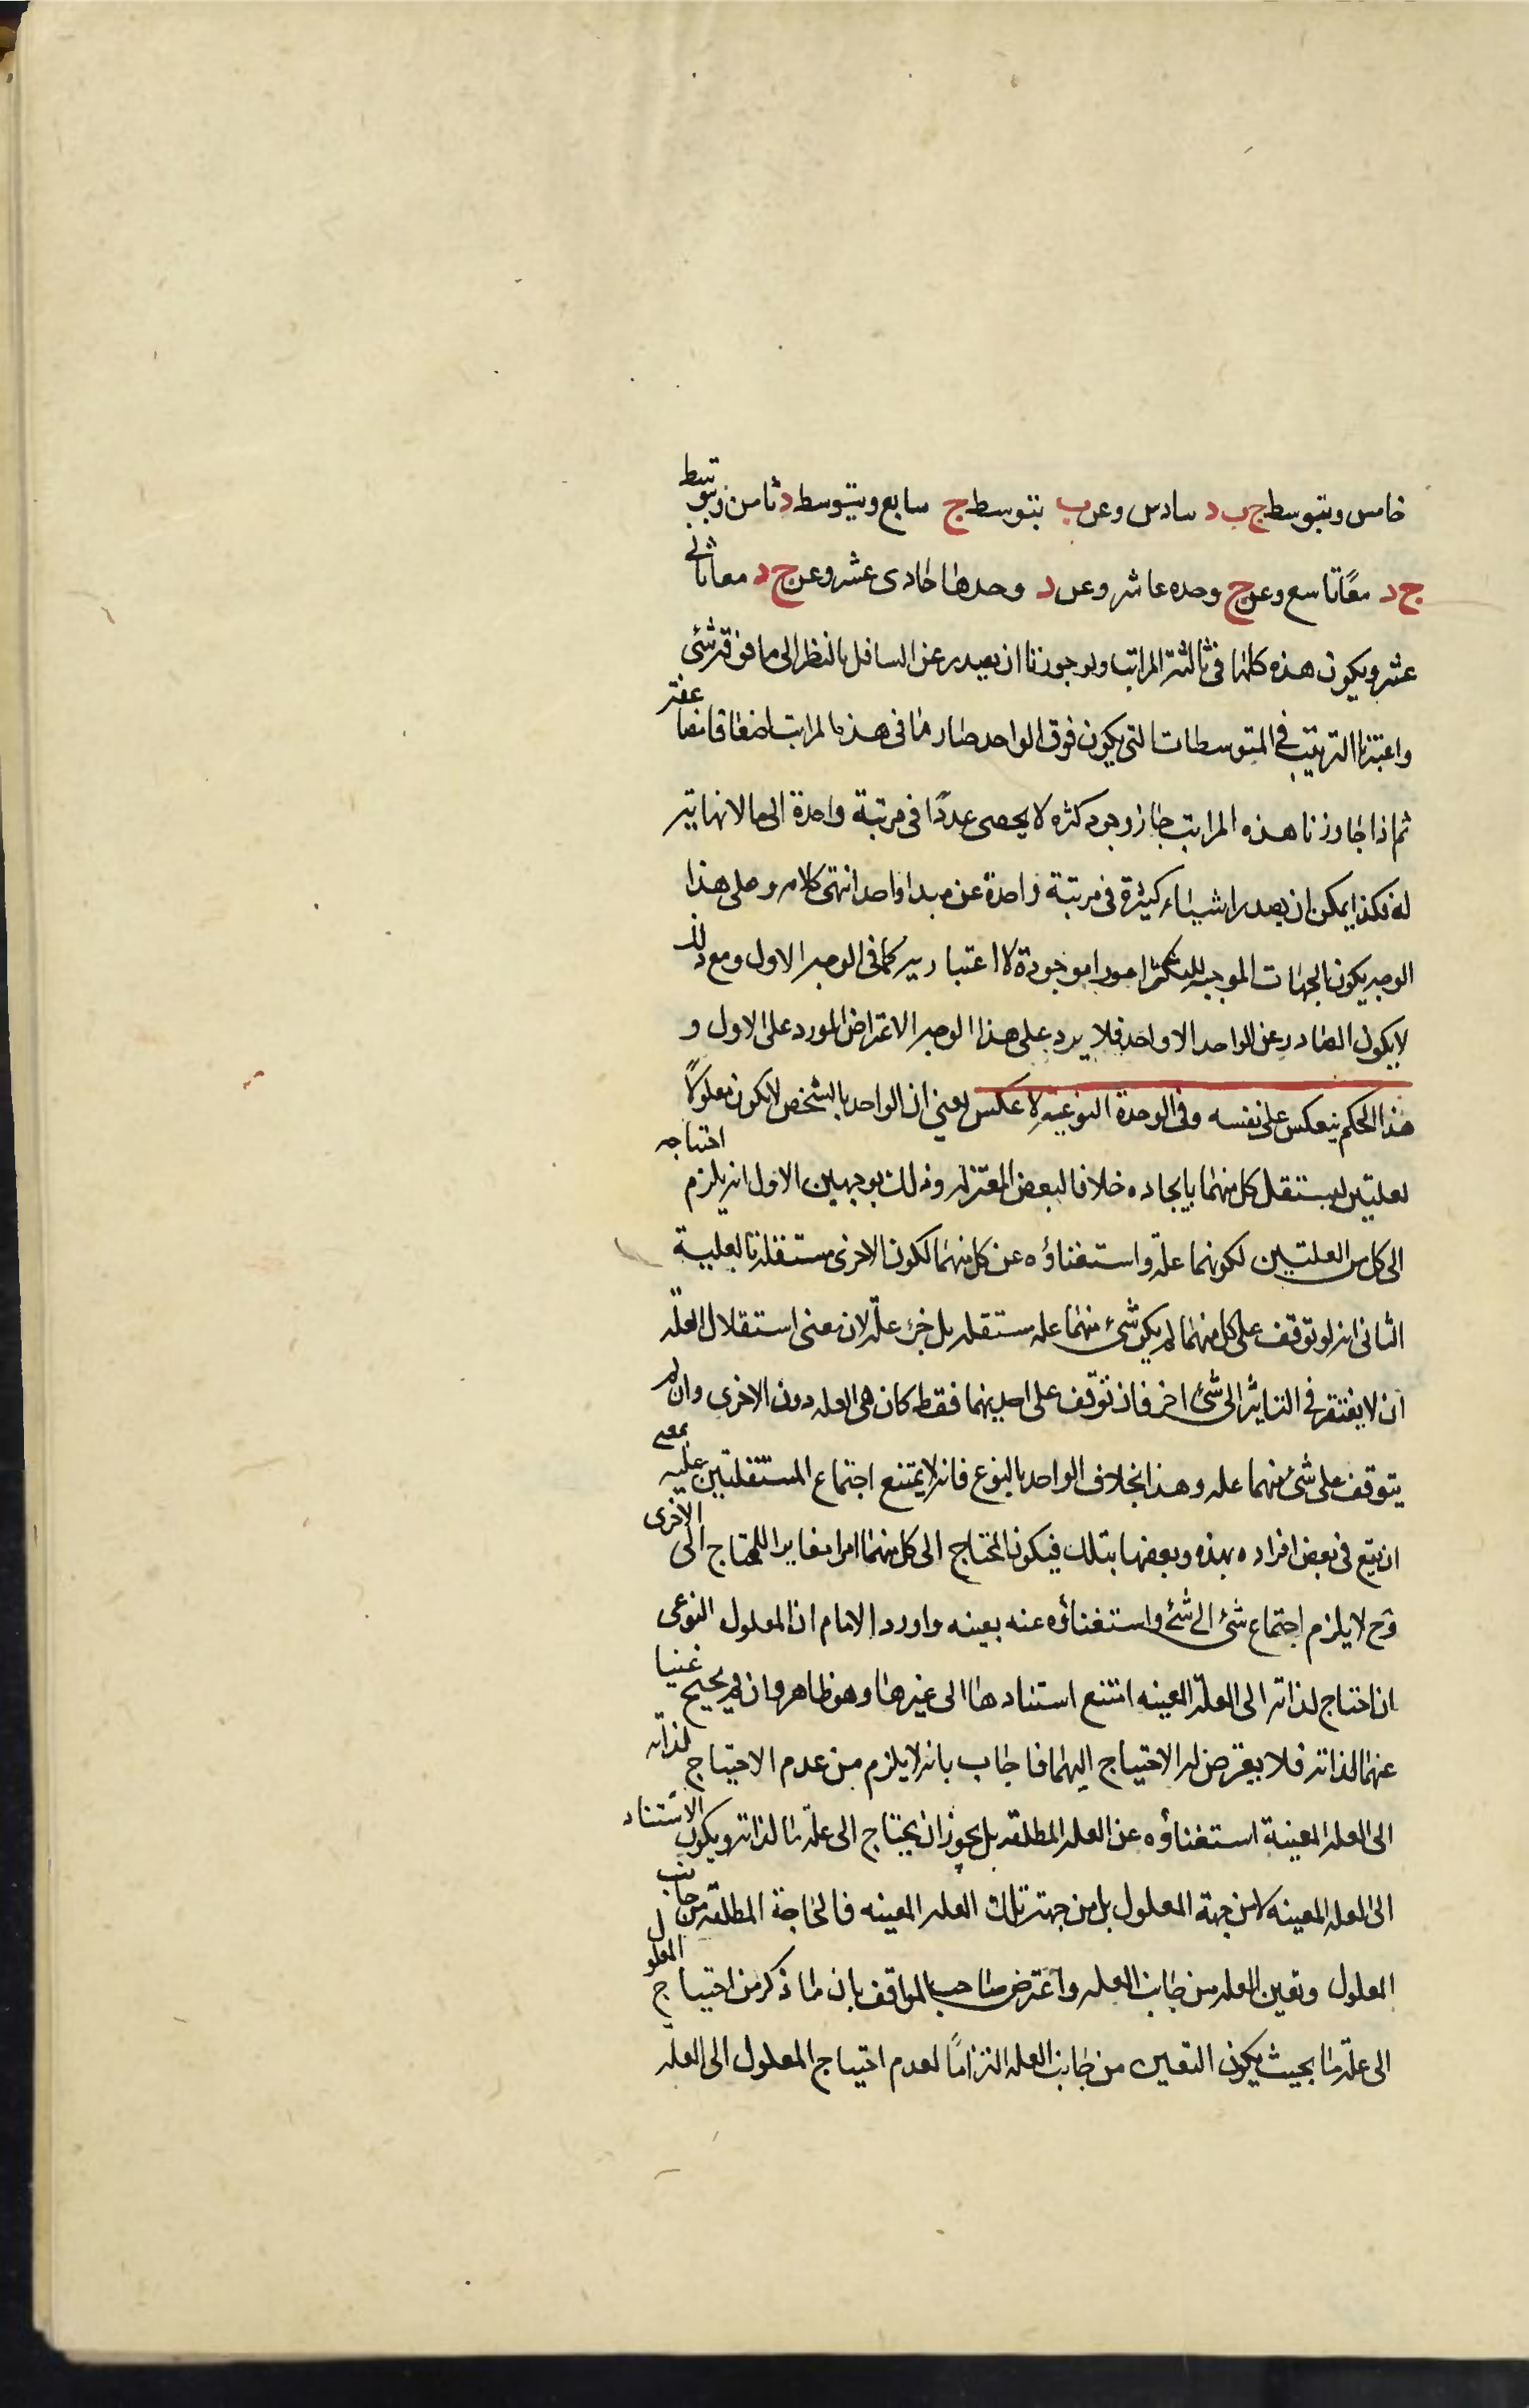 خامس وبتوسط ج ب د سادس وعن ب بتوسط ج سابع وبتوسط د ثامن وبتوسط
ج د معًا تاسع وعن ج وحده عاشر وعن د وحدها حادى عشر وعن ج د معا ثانى
عشر ويكون هذه كلها فى ثالثة المراتب ولو جوزنا ان يصدر عن السافل بالنظر الى ما فوقه شئ
واعتبرنا الترتيب فى المتوسطات التى يكون فوق الواحد صار ما فى هذه المراتب اضعافا مضاعفة
ثم اذا جاوزنا هذه المراتب جاز وجود كثرة لا يحصى عددًا فى مرتبة واحدة الى ما لا نهاية
له فهكذا يمكن ان يصدر اشياء كثيرة فى مرتبة واحدة عن مبدا واحد انتهى كلامه وعلى هذا
الوجه يكون الجهات الموجبة للتكثر امورا موجودة لا اعتبارية كما فى الوجه الاول ومع ذلك
لا يكون الصادر عن الواحد الا واحد فلا يرد على هذا الوجه الاعتراض المورد على الاول و
هذا الحكم ينعكس على نفسه وفى الوحدة النوعية لا عكس يعنى ان الواحد بالشخص لا يكون معلولًا
لعلتين ليستقل كل منهما بايجاده خلافا لبعض المعتزلة وذلك بوجهين الاول انه يلزم احتياجه
الى كل من العلتين لكونهما علة واستغناؤه عن كل منهما لكون الاخرى مستقلة بالعلية
الثانى انه لو توقف على كل منهما لم يكن شئ منهما علة مستقلة بل جزء علة لان معنى استقلال العلة
ان لا يفتقر فى التاثير الى شئ اخر فان توقف على احديهما فقط كان هى العلة دون الاخرى وان لم
يتوقف على شئ منهما علة وهذا بخلاف الواحد بالنوع فانه لا يمتنع اجتماع المستقلتين عليه بمعنى
ان يقع فى بعض افراده بهذه وبعضها بتلك فيكون المحتاج الى كل منهما امرا مغايرا للمحتاج الى الاخرى
وح لا يلزم اجتماع شئ الى شئ واستغناؤه عنه بعينه واورد الامام ان المعلول النوعى
ان احتاج لذاته الى العلة المعينة امتنع استنادها الى غيرها وهو ظاهر وان لم يحتج غنيا
عنهما لذاته فلا يعرض له الاحتياج اليهما فاجاب بانه لا يلزم من عدم الاحتياج لذاته
الى العلة المعينة استغناؤه عن العلة المطلقة بل يجوز ان يحتاج الى علة ما لذاته ويكون الاستناد
الى العلة المعينة لا من جهة المعلول بل من جهة تلك العلة المعينه فالحاجة المطلقة من جانب
المعلول وتعين العلة من جانب العلة واعترض صاحب المواقف بان ما ذكر من احتياج المعلول
الى علة ما بحيث يكون التعين من جانب العلة التزامًا لعدم احتياج المعلول الى العلة